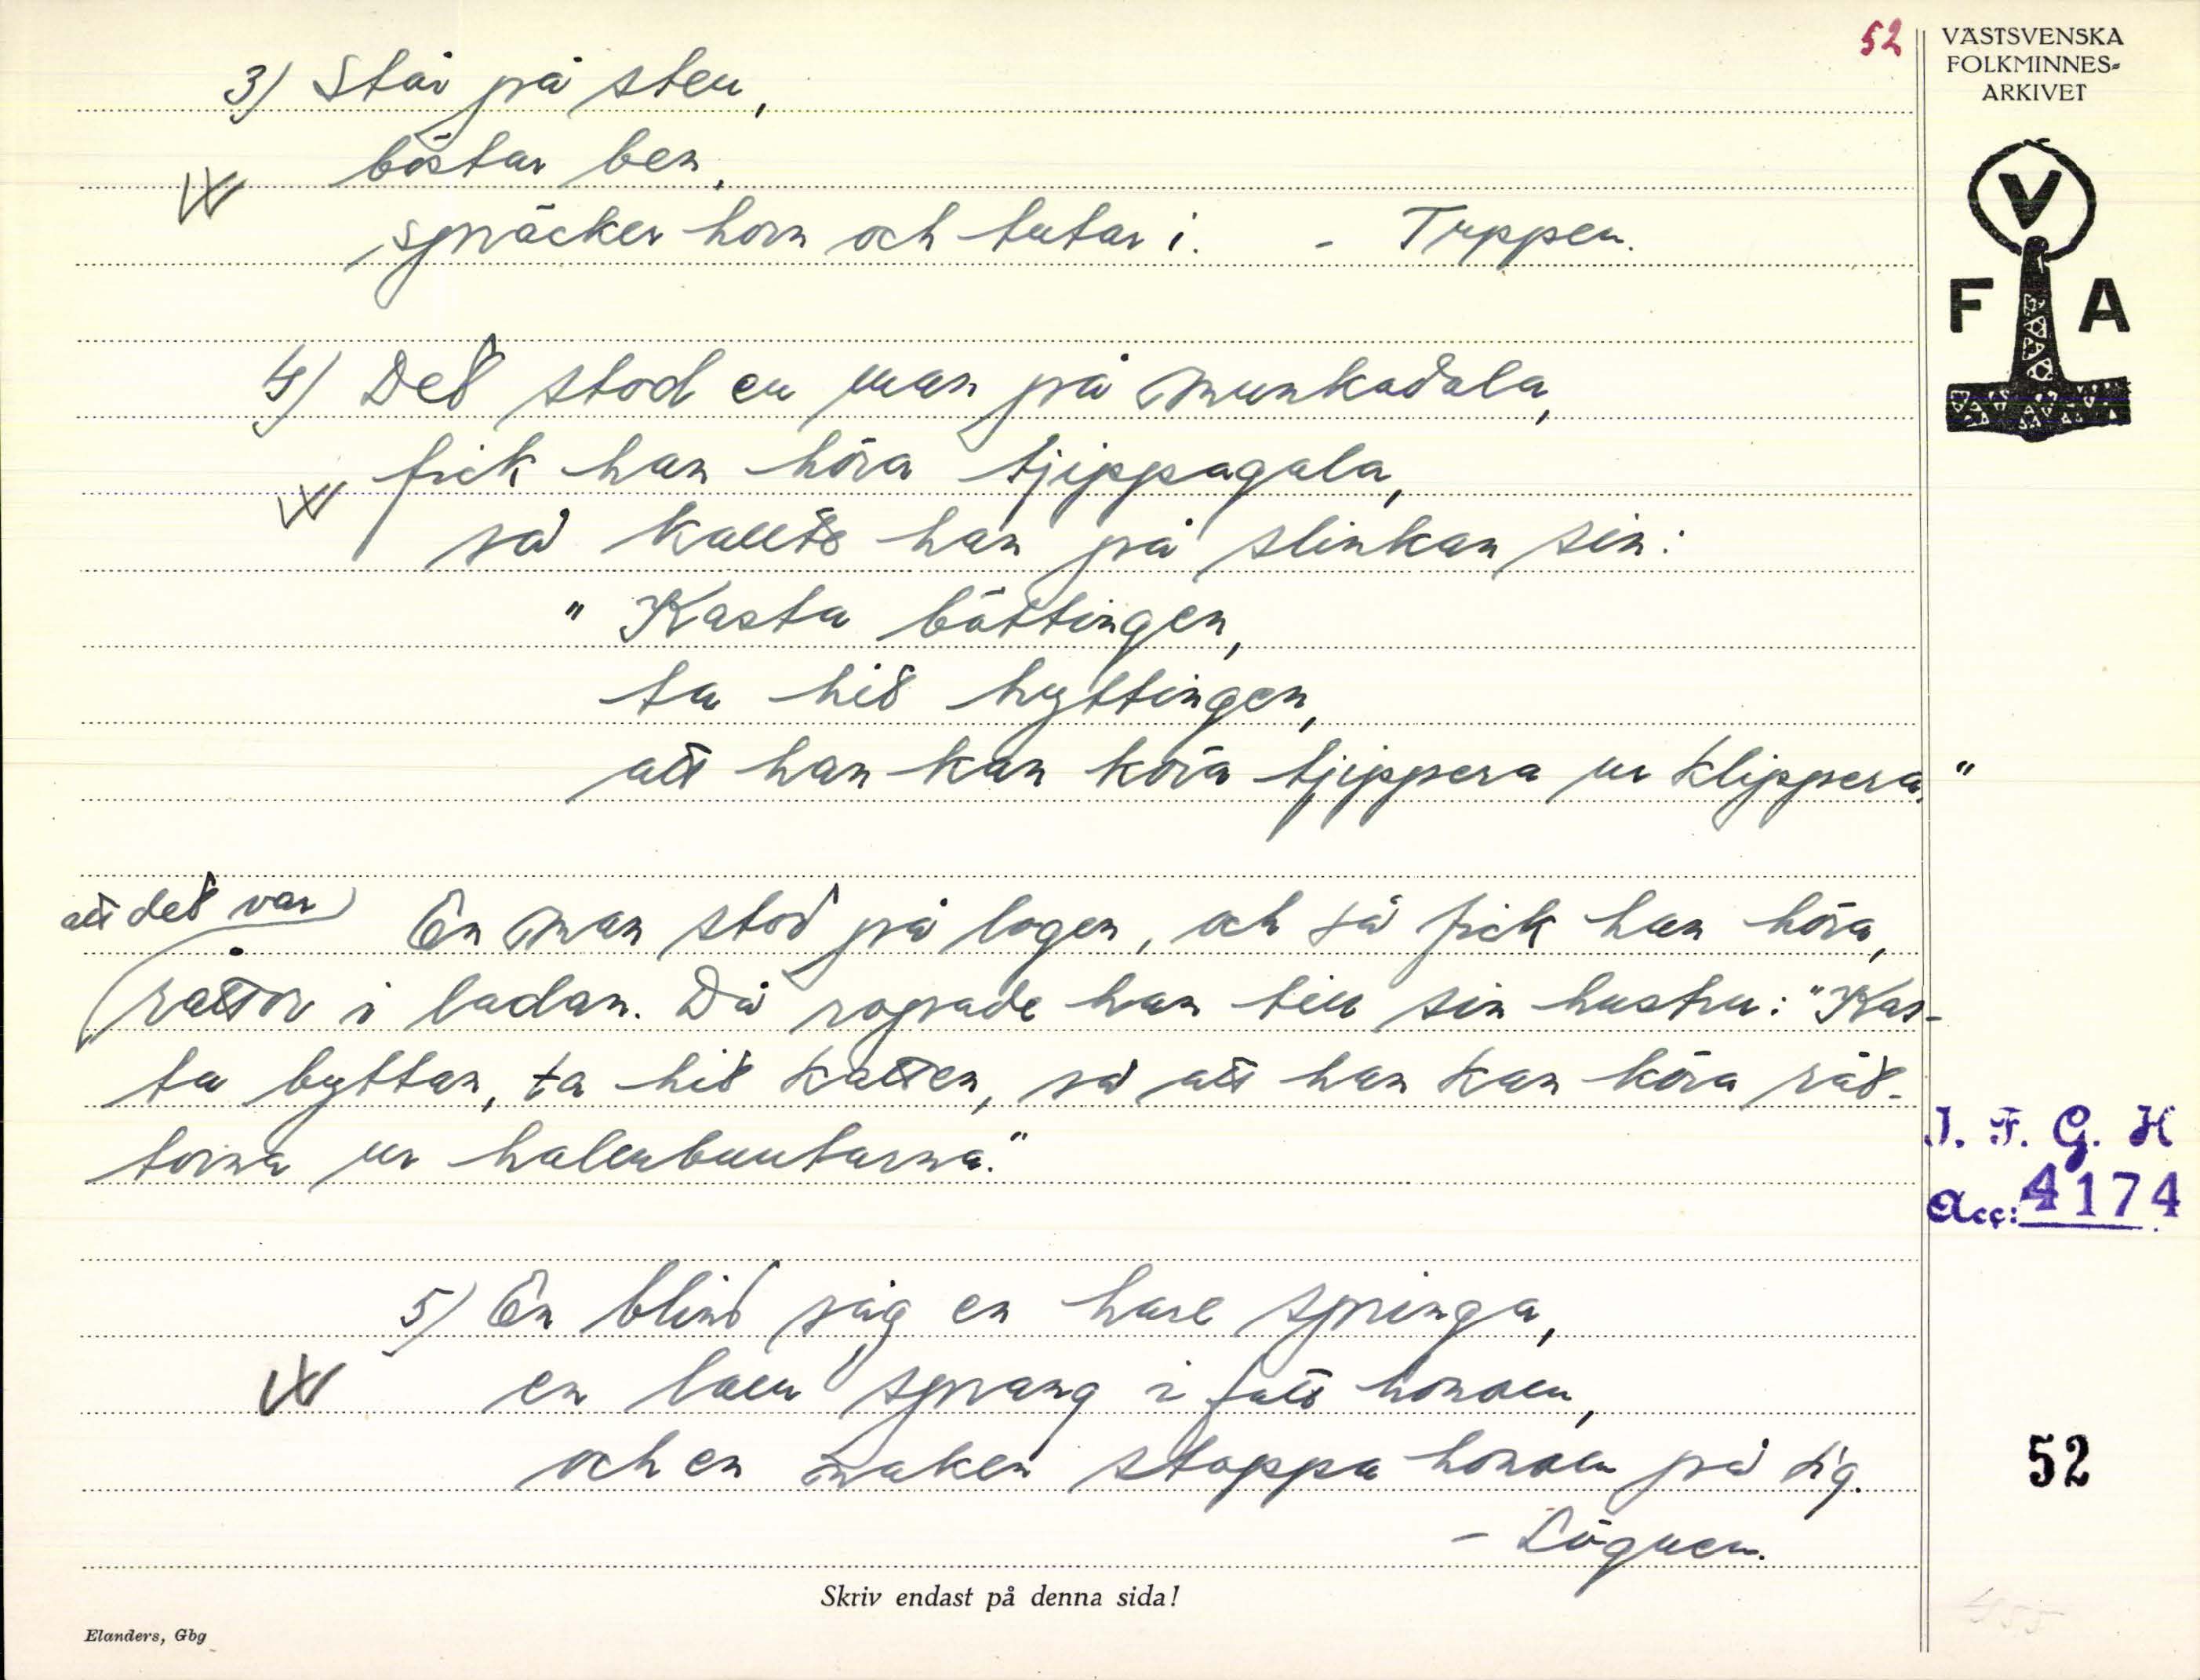 52
VÄSTSVENSKA
FOLKMINNES-
ARKIVET
V
F A
3) Står på sten,
böstar ben,
spräcker horn och tutar i. - Tuppen.
4) Det stod en man på munkadala,
fick han höra tjippagala,
så kallte han på slinkan sin:
" Kasta böttingen,
ta hit hyttingen,
att han kan köra tjippera ur klippera."
att det var
En man stod på logen, och så fick han höra,
råttor i ladan. Då ropade han till sin hustru: "Kas-
ta byttan, ta hit katten, så att han kan köra råt-
torna ur halmbuntarna."
I. F. G. H
Acc: 4174
5) En blind såg en hare springa,
en lam sprang i fatt honom,
och en naken stoppa honom på sig.
- Lögnen.
52
Skriv endast på denna sida!
Elanders, Gbg
455